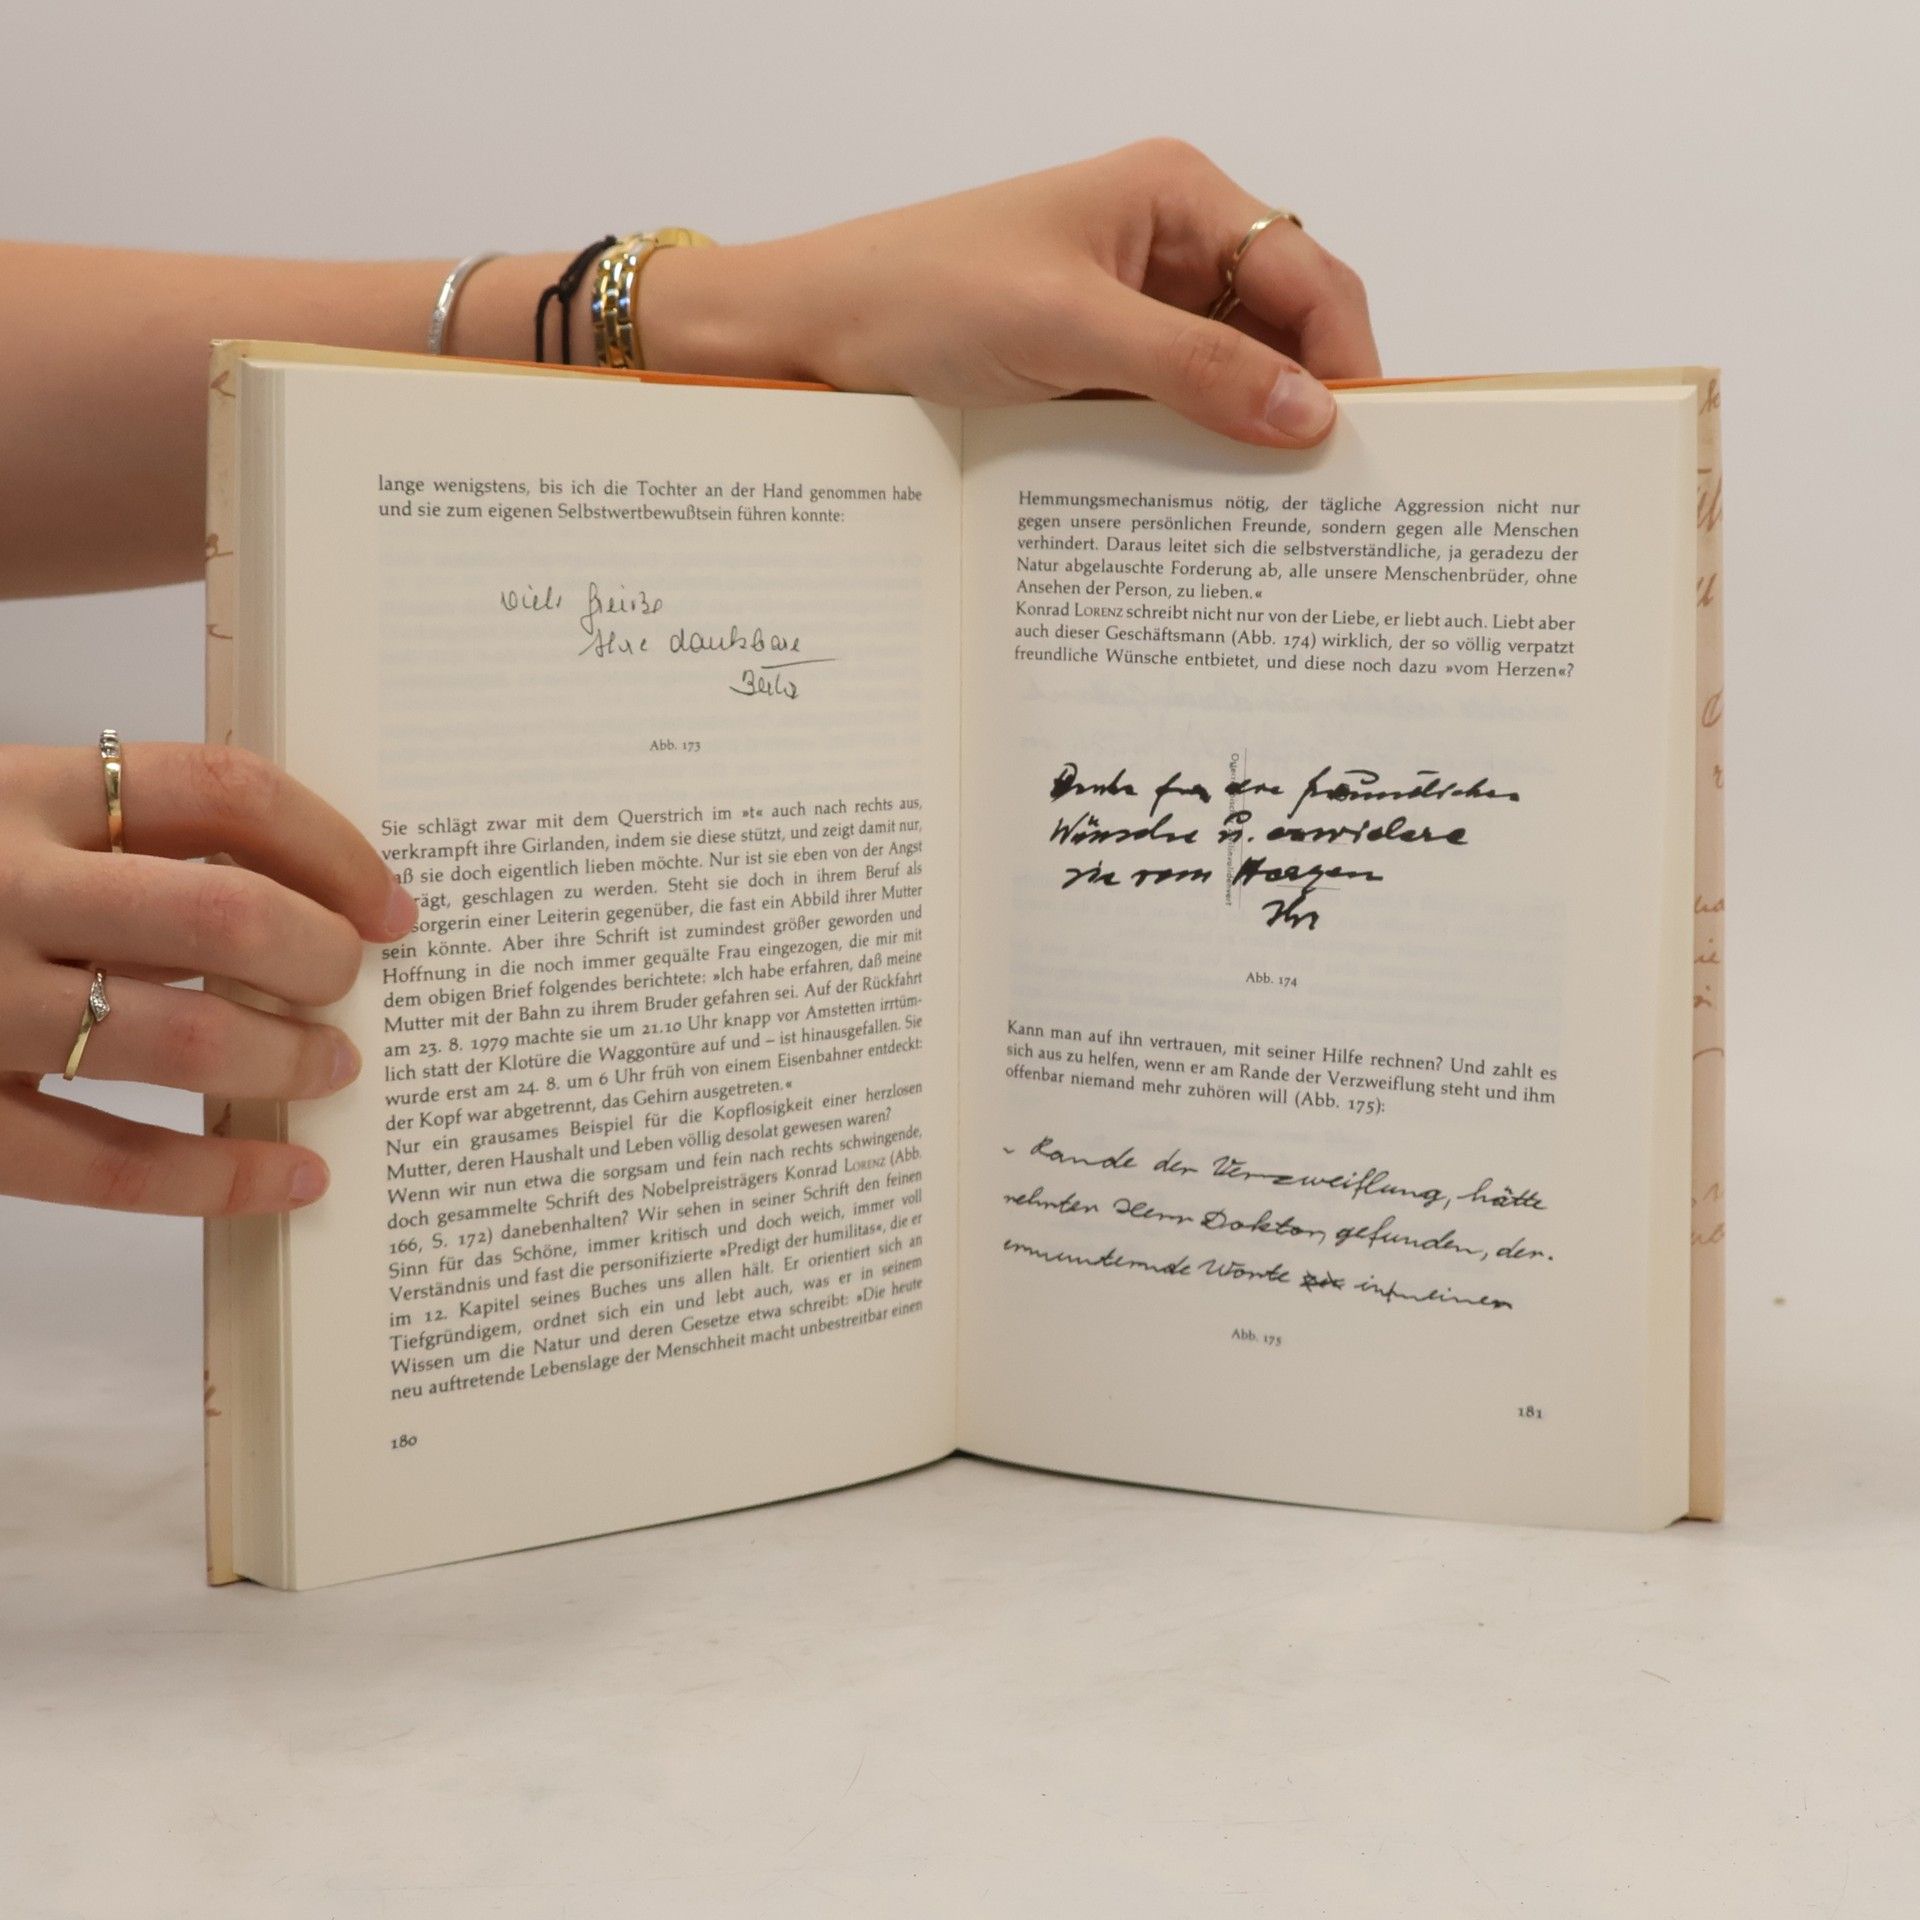 lange wenigstens, bis ich die Tochter an der Hand genommen habe
und sie zum eigenen Selbstwertbewußtsein führen konnte:
Viele Grüße
Ihre dankbare
Abb. 173
Sie schlägt zwar mit dem Querstrich im »t« auch nach rechts aus,
verkrampft ihre Girlanden, indem sie diese stützt, und zeigt damit nur,
aß sie doch eigentlich lieben möchte. Nur ist sie eben von der Angst
rägt, geschlagen zu werden. Steht sie doch in ihrem Beruf als
sorgerin einer Leiterin gegenüber, die fast ein Abbild ihrer Mutter
sein könnte. Aber ihre Schrift ist zumindest größer geworden und
Hoffnung in die noch immer gequälte Frau eingezogen, die mir mit
dem obigen Brief folgendes berichtete: »Ich habe erfahren, daß meine
Mutter mit der Bahn zu ihrem Bruder gefahren sei. Auf der Rückfahrt
am 23. 8. 1979 machte sie um 21.10 Uhr knapp vor Amstetten irrtüm-
lich statt der Klotüre die Waggontüre auf und – ist hinausgefallen. Sie
wurde erst am 24. 8. um 6 Uhr früh von einem Eisenbahner entdeckt:
der Kopf war abgetrennt, das Gehirn ausgetreten.«
Nur ein grausames Beispiel für die Kopflosigkeit einer herzlosen
Mutter, deren Haushalt und Leben völlig desolat gewesen waren?
Wenn wir nun etwa die sorgsam und fein nach rechts schwingende,
doch gesammelte Schrift des Nobelpreisträgers Konrad LORENZ (Abb.
166, S. 172) danebenhalten? Wir sehen in seiner Schrift den feinen
Sinn für das Schöne, immer kritisch und doch weich, immer voll
Verständnis und fast die personifizierte »Predigt der humilitas«, die er
im 12. Kapitel seines Buches uns allen hält. Er orientiert sich an
Tiefgründigem, ordnet sich ein und lebt auch, was er in seinem
Wissen um die Natur und deren Gesetze etwa schreibt: »Die heute
neu auftretende Lebenslage der Menschheit macht unbestreitbar einen
180
Hemmungsmechanismus nötig, der tägliche Aggression nicht nur
gegen unsere persönlichen Freunde, sondern gegen alle Menschen
verhindert. Daraus leitet sich die selbstverständliche, ja geradezu der
Natur abgelauschte Forderung ab, alle unsere Menschenbrüder, ohne
Ansehen der Person, zu lieben.«
Konrad LORENZ schreibt nicht nur von der Liebe, er liebt auch. Liebt aber
auch dieser Geschäftsmann (Abb. 174) wirklich, der so völlig verpatzt
freundliche Wünsche entbietet, und diese noch dazu »vom Herzen«?
Danke für die freundlichen
Wünsche u. erwidere
sie vom Herzen
Ihr
Abb. 174
Kann man auf ihn vertrauen, mit seiner Hilfe rechnen? Und zahlt es
sich aus zu helfen, wenn er am Rande der Verzweiflung steht und ihm
offenbar niemand mehr zuhören will (Abb. 175):
Rande der Verzweiflung, hätte
rehrten Herr Doktor, gefunden, der
ermunternde Worte in meinen
Abb. 175
181